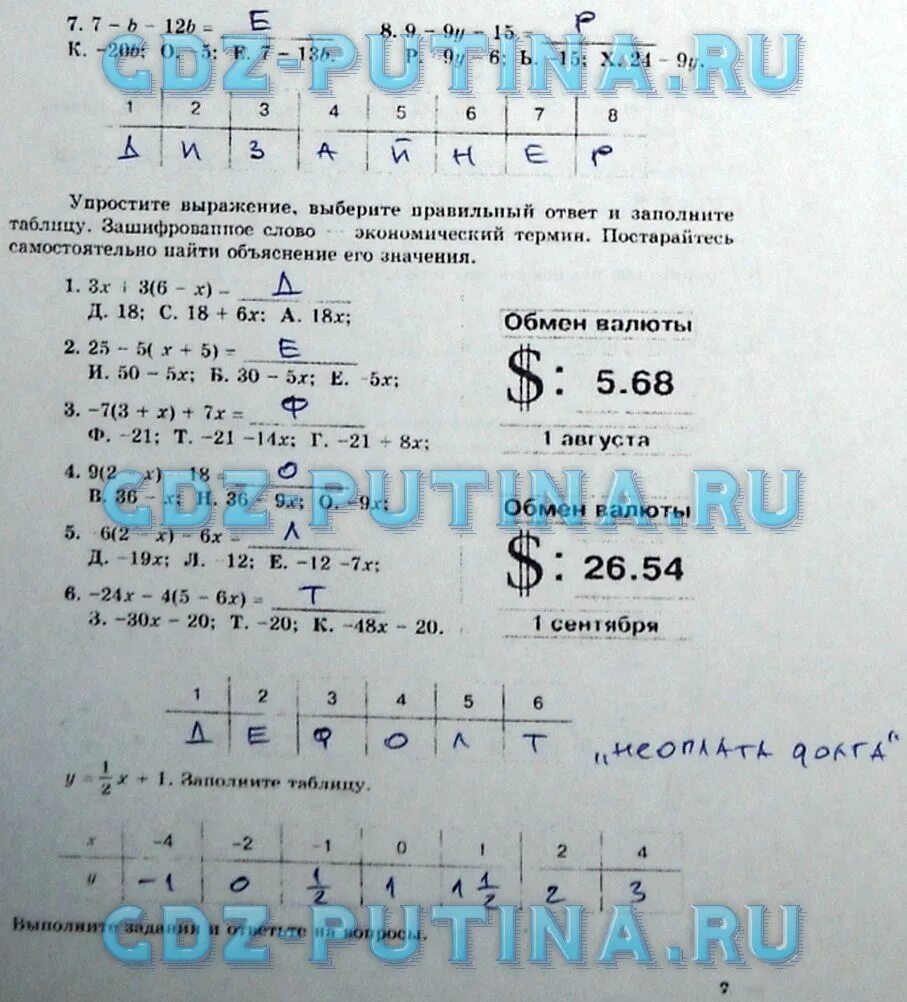 7. 7 − b − 12b = Е
8. 9 − 9y − 15 = Р
К. −20b; О. −5; Е. 7 − 13b.
Р. −9y − 6; Ь. −15; Х. 24 − 9y.
GDZ-PUTINA.RU
1 2 3 4 5 6 7 8
Д И З А Й Н Е Р
Упростите выражение, выберите правильный ответ и заполните
таблицу. Зашифрованное слово — экономический термин. Постарайтесь
самостоятельно найти объяснение его значения.
1. 3x + 3(6 − x) = Д
Д. 18; С. 18 + 6x; А. 18x;
2. 25 − 5( x + 5) = Е
И. 50 − 5x; Б. 30 − 5x; Е. −5x;
3. −7(3 + x) + 7x = Ф
Ф. −21; Т. −21 −14x; Г. −21 + 8x;
4. 9(2 − x) − 18 = О
В. 36 − x; Н. 36 − 9x; О. −9x;
5. −6(2 − x) − 6x = Л
Д. −19x; Л. −12; Е. −12 −7x;
6. −24x − 4(5 − 6x) = Т
З. −30x − 20; Т. −20; К. −48x − 20.
Обмен валюты
$: 5.68
1 августа
GDZ-PUTINA.RU
Обмен валюты
$: 26.54
1 сентября
1 2 3 4 5 6
Д Е Ф О Л Т
„неоплата долга"
y = 1/2 x + 1. Заполните таблицу.
x −4 −2 −1 0 1 2 4
y −1 0 1/2 1 1 1/2 2 3
GDZ-PUTINA.RU
Выполните задания и ответьте на вопросы.
7